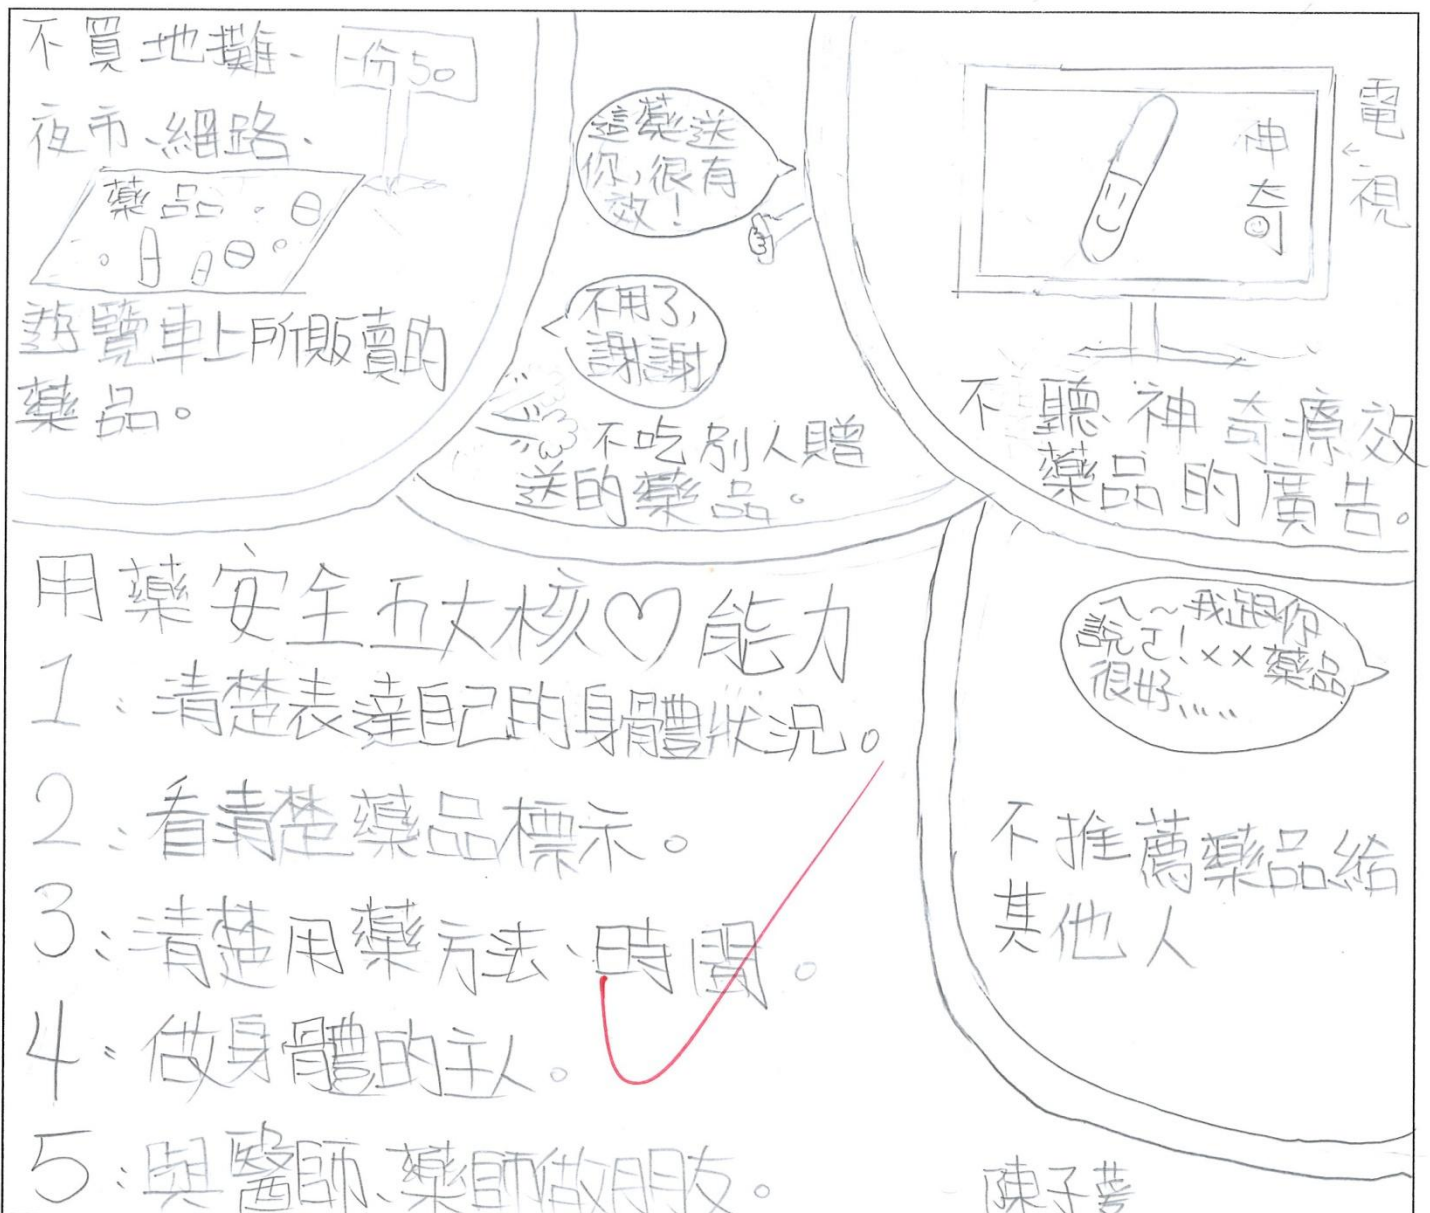 不買地攤、
一份50
夜市、網路、
藥品
遊覽車上所販賣的
藥品。
這藥送
你,很有
效!
不用了,
謝謝
不吃別人贈
送的藥品。
神奇
電視
不聽神奇療效
藥品的廣告。
用藥安全五大核♡能力
1:清楚表達自己的身體狀況。
2:看清楚藥品標示。
3:清楚用藥方法、時間。
4:做身體的主人。
5:與醫師、藥師做朋友。
ㄟ~我跟你
說ㄛ!××藥品
很好、、、、、
不推薦藥品給
其他人
陳子